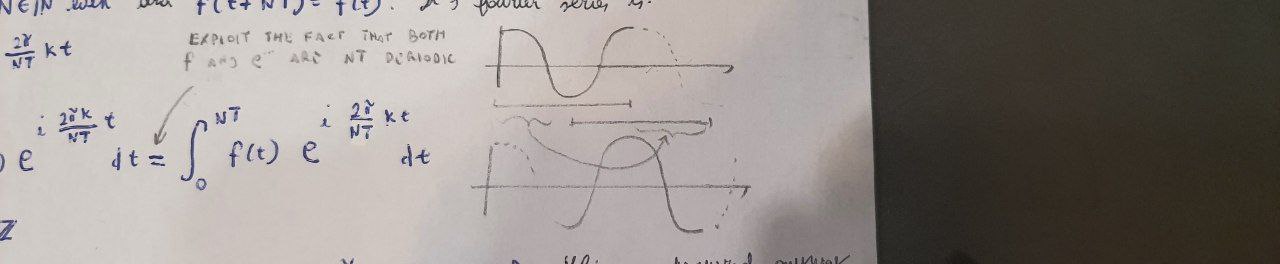 N∈ℕ and f(t+NT)=f(t). fourier series
2π/NT kt
EXPLOIT THE FACT THAT BOTH
f AND e ARE NT PERIODIC
e^{i 2πk/NT t} dt = ∫_0^{NT} f(t) e^{i 2π/NT kt} dt
ℤ